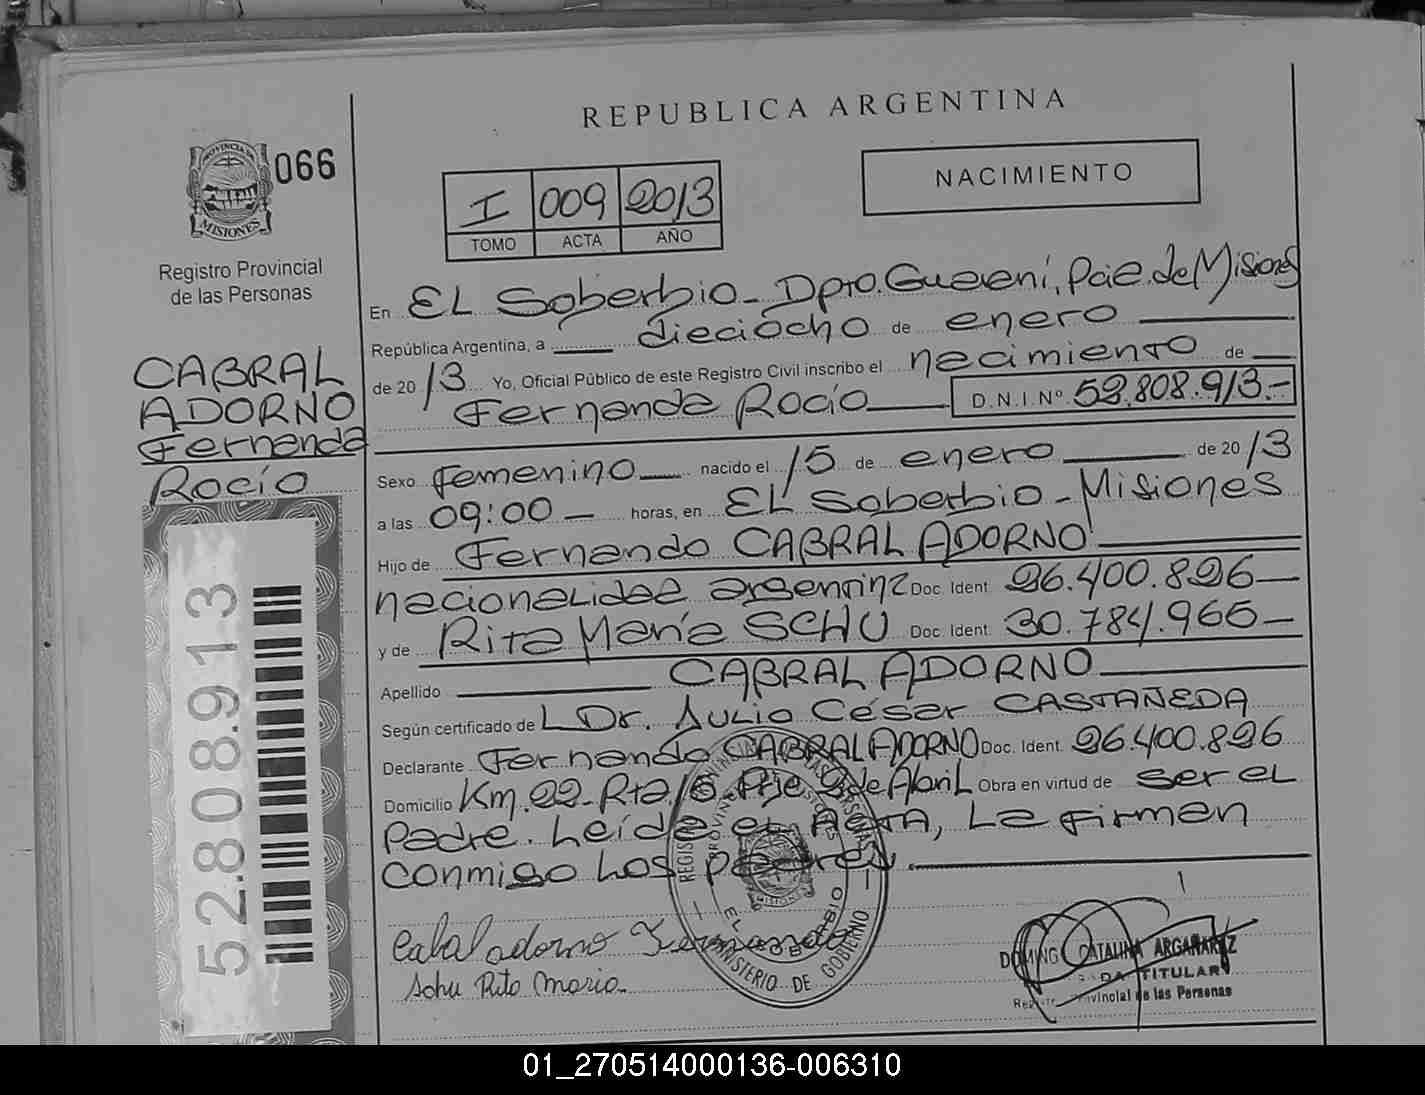 REPUBLICA ARGENTINA
PROVINCIA DE
MISIONES
066
Registro Provincial
de las Personas
I 009 2013
TOMO ACTA AÑO
NACIMIENTO
CABRAL
ADORNO
Fernanda
Rocío
52.808.913
En EL Soberbio - Dpto. Guaraní, Pcia. de Misiones
República Argentina, a dieciocho de enero
de 20 13 Yo, Oficial Público de este Registro Civil inscribo el nacimiento de
Fernanda Rocío D.N.I.Nº 52.808.913.-
Sexo Femenino nacido el 15 de enero de 20 13
a las 09:00 - horas, en EL Soberbio - Misiones
Hijo de Fernando CABRAL ADORNO
nacionalidad argentina Doc. Ident. 26.400.826
y de Rita María SCHU Doc. Ident. 30.784.965
Apellido CABRAL ADORNO
Según certificado de L Dr. Julio César CASTAÑEDA
Declarante Fernando CABRAL ADORNO Doc. Ident. 26.400.826
Domicilio Km. 22 - Rta Pje 2 de Abril Obra en virtud de ser el
Padre. Leída el ACTA, La firman
conmigo los padres.
Cabral adorno Fernando
Schu Rita Maria
EL SOBERBIO
MINISTERIO DE GOBIERNO
CATALINA ARGAÑARAZ
TITULAR
Provincial de las Personas
01_270514000136-006310